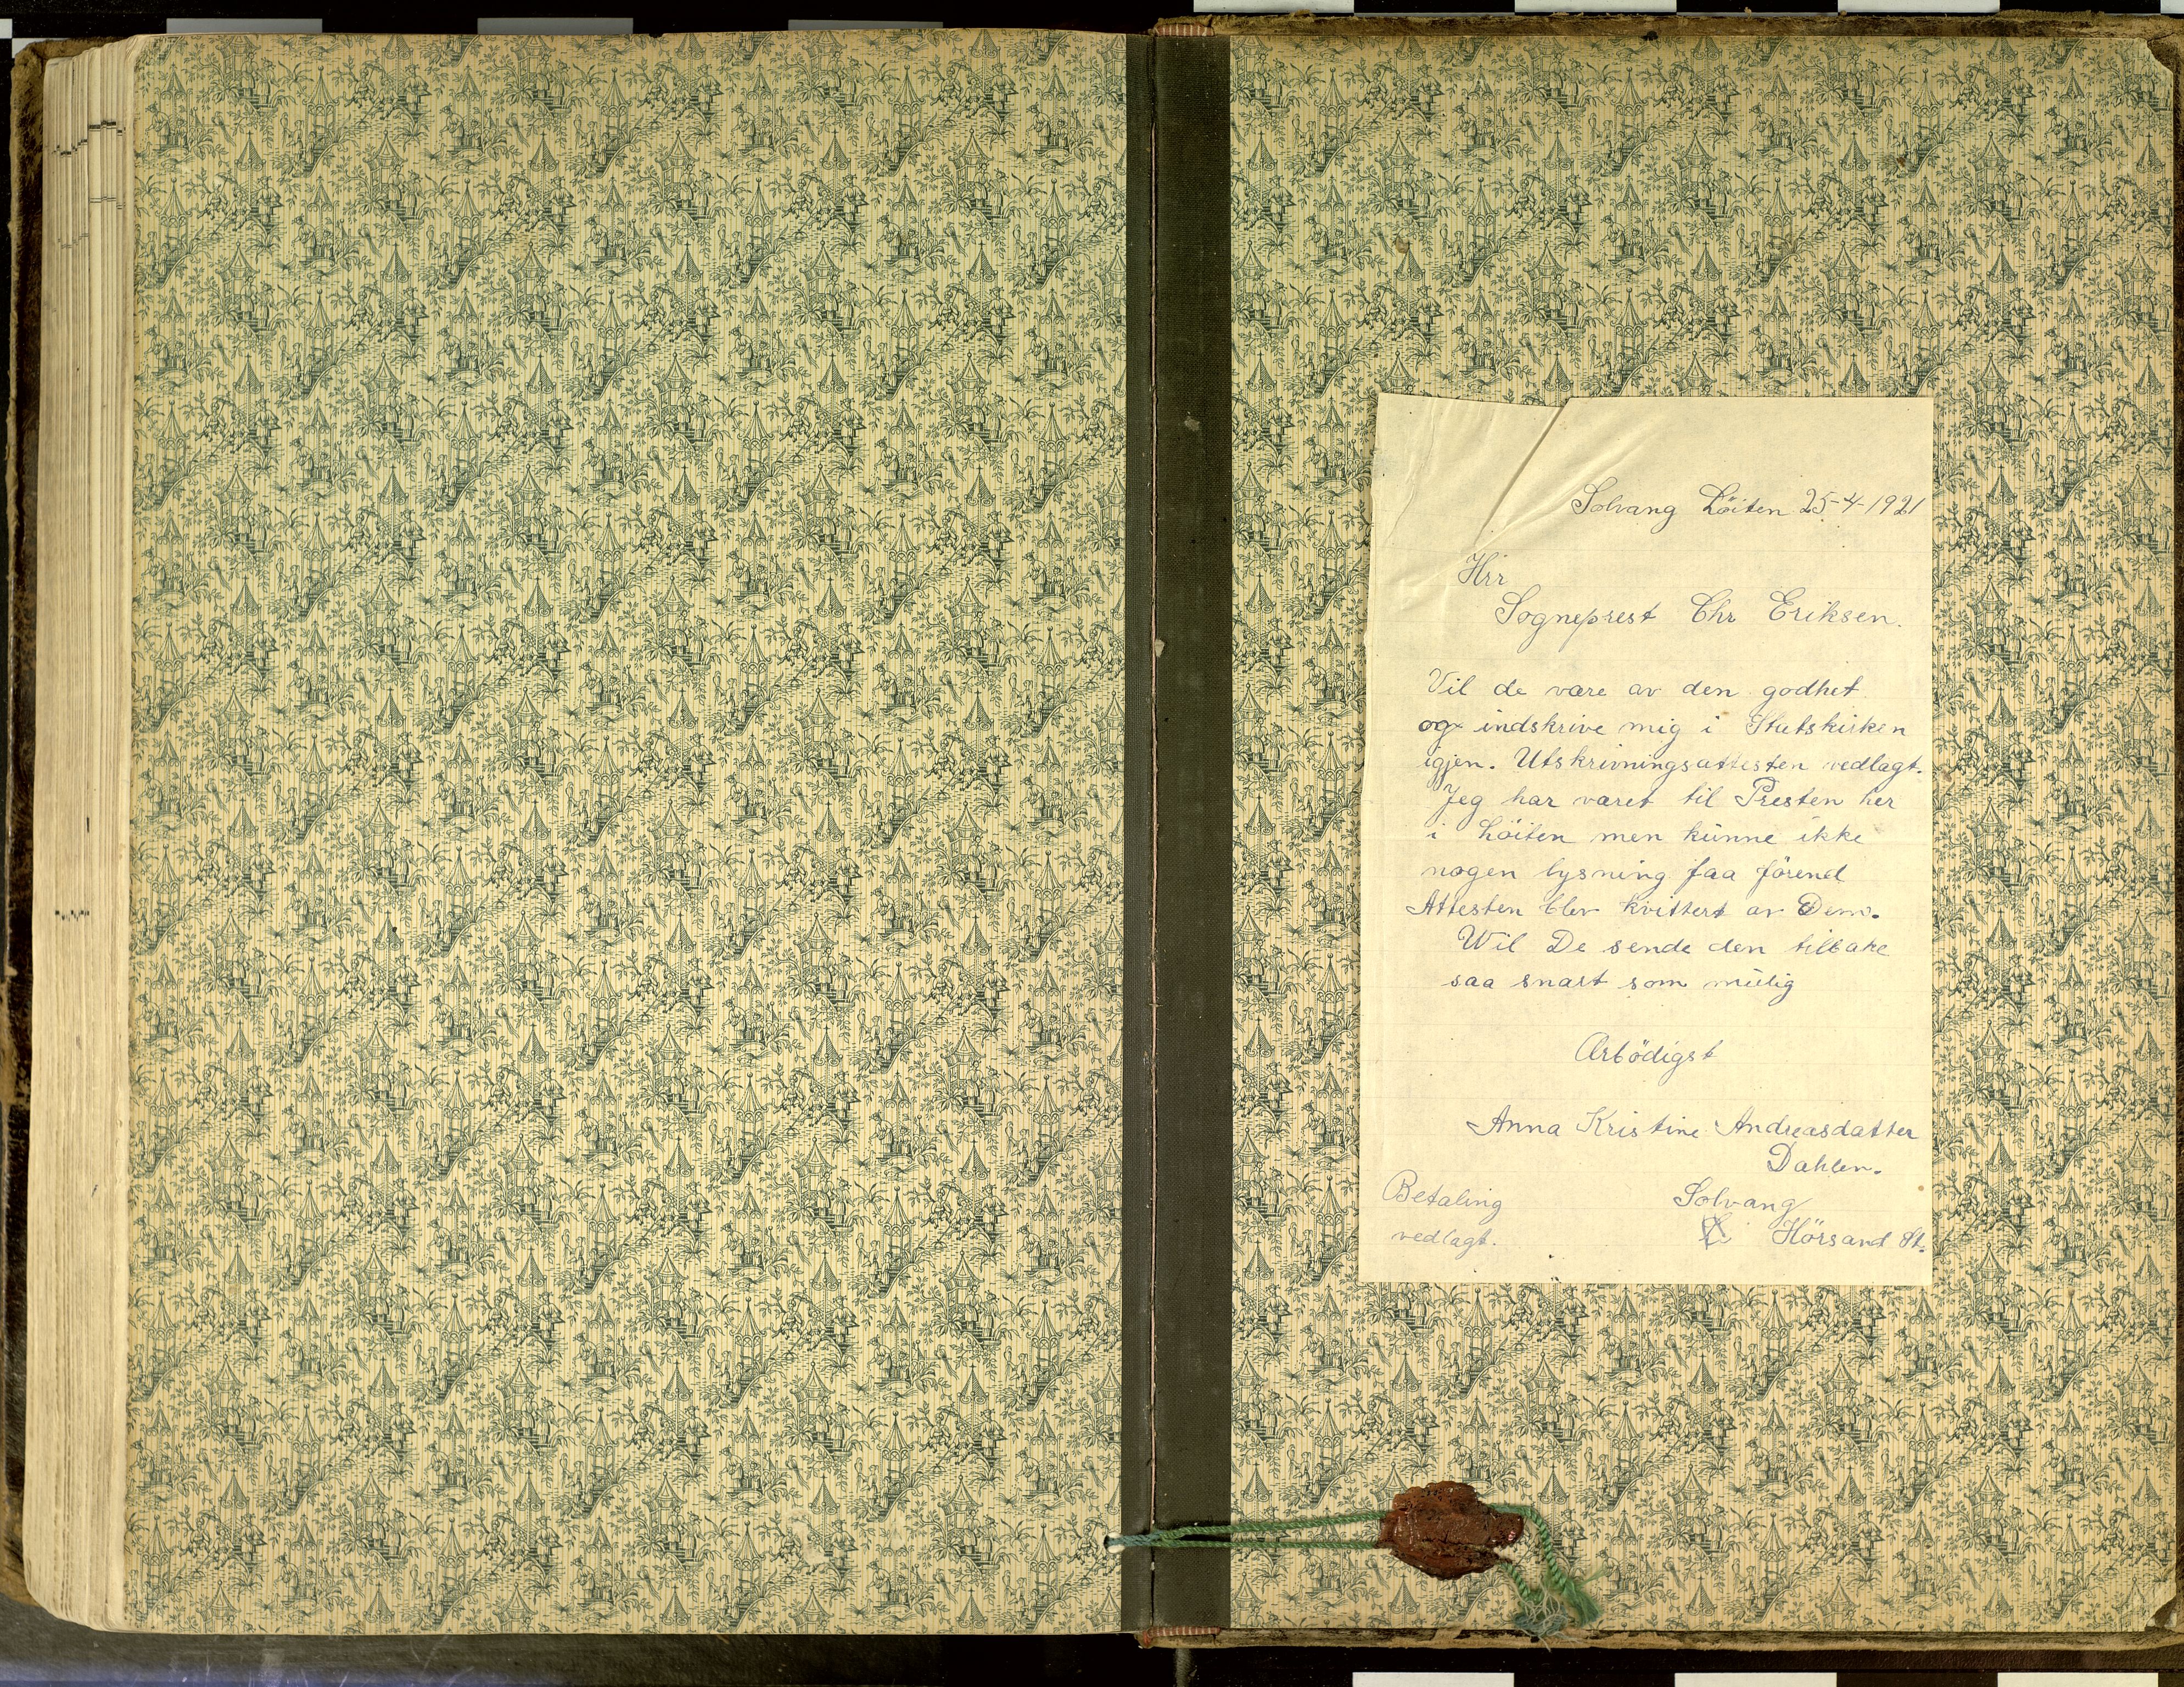 Solvang Löiten 25-4-1921
Hrr
Sogneprest Chr Eriksen.
Vil de være av den godhet
og indskrive mig i Statskirken
igjen. Utskrivningsattesten vedlagt.
Jeg har været til Presten her
i Löiten men kunne ikke
nogen lysning faa förend
Attesten blev kvittert av Dem.
Wil De sende den tilbake
saa snart som mulig
Ærbödigst
Anna Kristine Andreasdatter
Dahlen.
Betaling
vedlagt.
Solvang
Hörsand St.